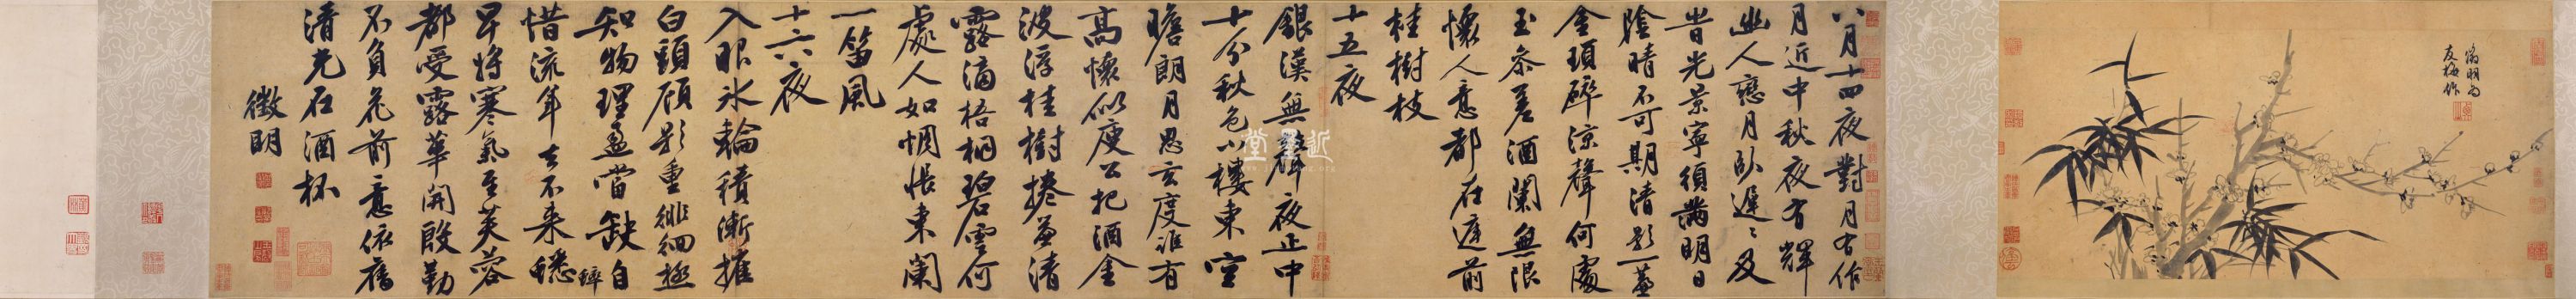 徵明為
友梅作
八月十四夜對月有作
月近中秋夜有輝
幽人戀月臥遲遲及
時光景寧須滿明日
陰晴不可期清影一簾
金瑣碎涼聲何處
玉參差酒闌無限
懷人意都在庭前
桂樹枝
十五夜
銀漢無聲夜正中
十分秋色小樓東空
瞻朗月思玄度誰有
高懷似庾公把酒金
波浮桂樹捲簾清
露滴梧桐碧雲何
處人如惆悵東闌
一笛風
十六夜
入眼冰輪積漸摧
白頭顧影重徘徊極
知物理盈當缺自
惜流年去不來穏
早將寒氣至芙蓉
都受露華開殷勤
不負花前意依舊
清光在酒杯
徵明
近墨堂